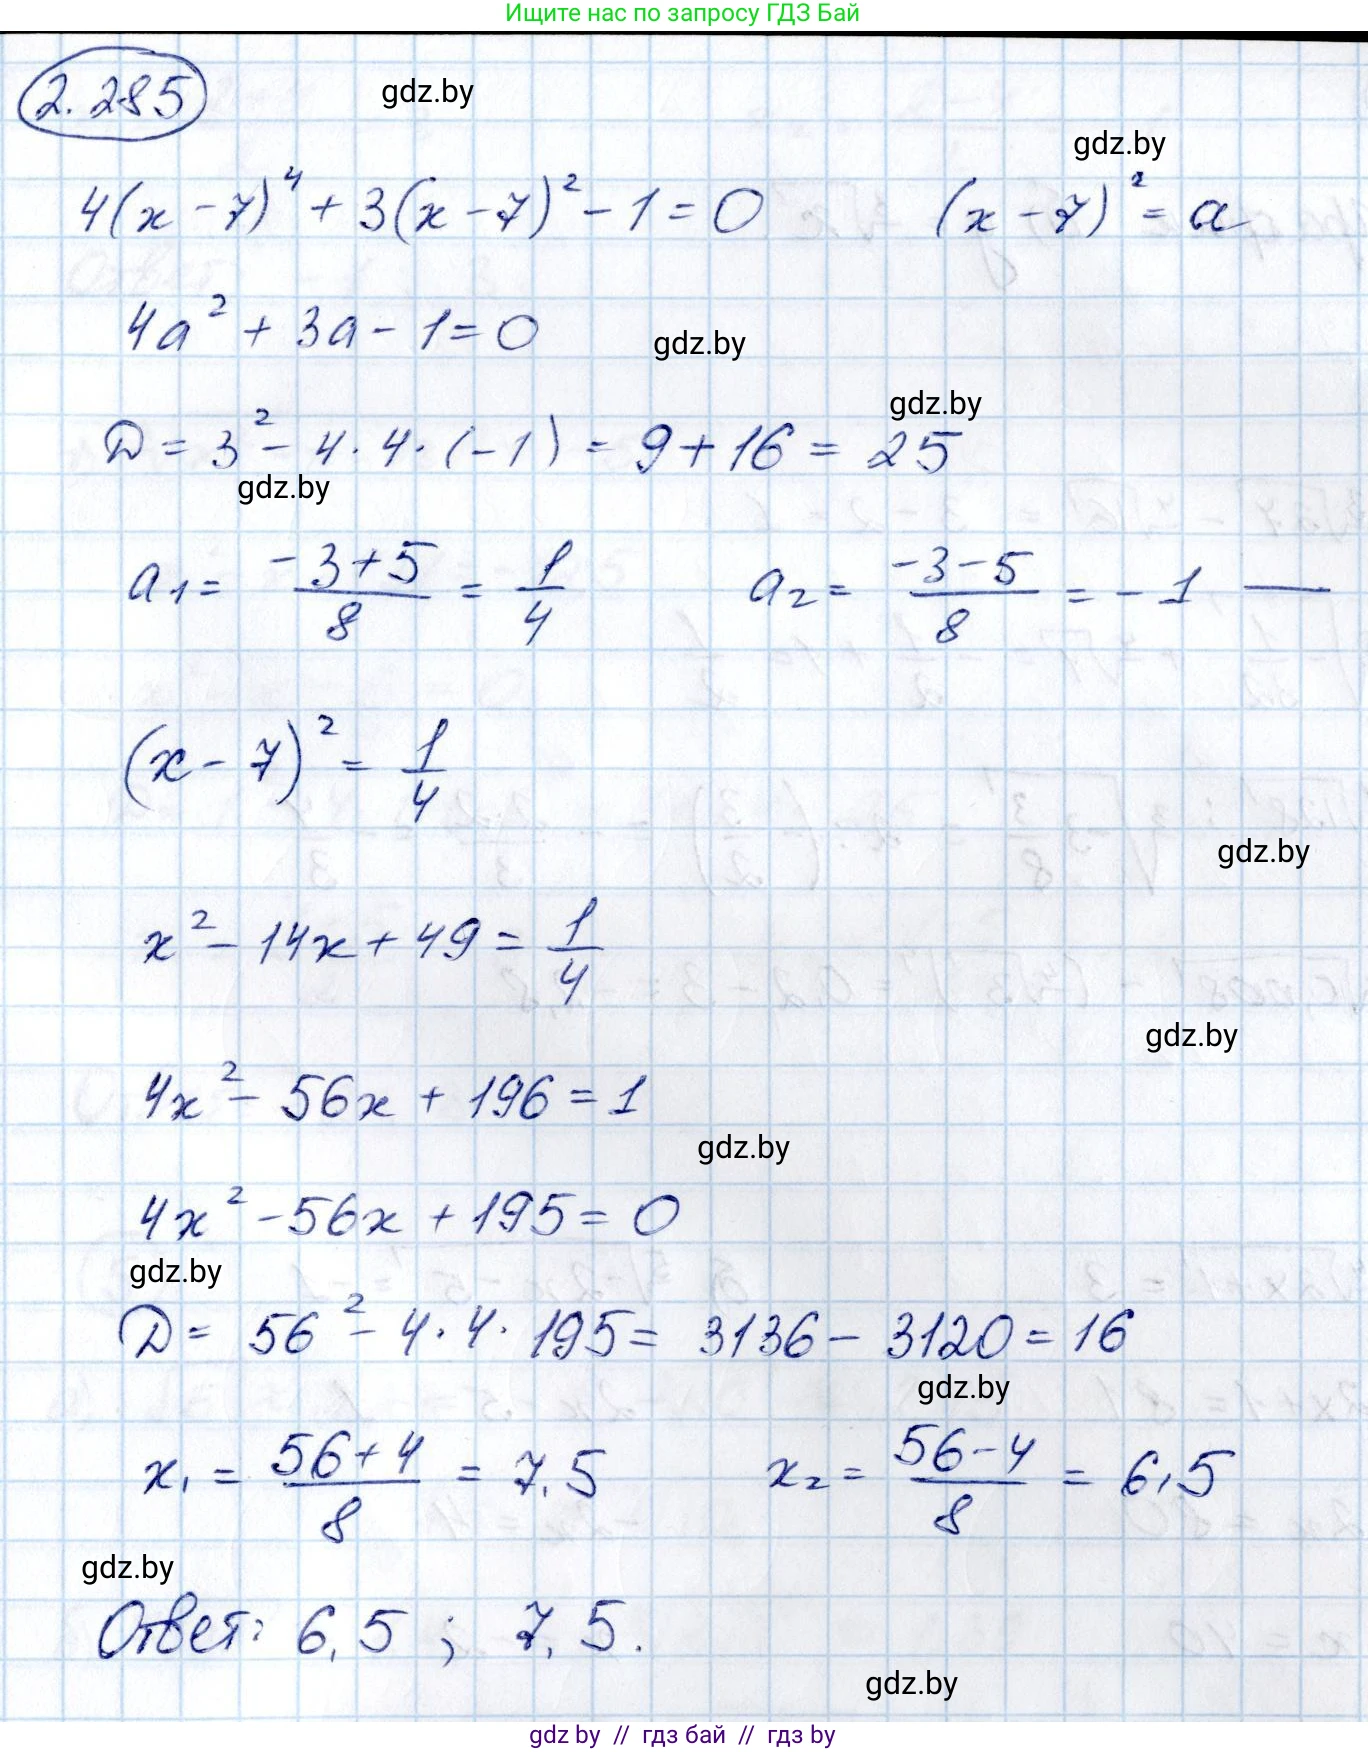 Ищите нас по запросу ГДЗ Бай
2.285
gdz.by
gdz.by
4(x-7)⁴ + 3(x-7)² - 1 = 0    (x-7)² = a
4a² + 3a - 1 = 0
gdz.by
gdz.by
D = 3² - 4·4·(-1) = 9 + 16 = 25
gdz.by
a₁ = (-3+5)/8 = 1/4    a₂ = (-3-5)/8 = -1 —
(x-7)² = 1/4
gdz.by
x² - 14x + 49 = 1/4
gdz.by
4x² - 56x + 196 = 1
gdz.by
4x² - 56x + 195 = 0
gdz.by
D = 56² - 4·4·195 = 3136 - 3120 = 16
gdz.by
x₁ = (56+4)/8 = 7,5    x₂ = (56-4)/8 = 6,5
gdz.by
Ответ: 6,5 ; 7,5.
gdz.by
gdz by // гдз бай // гдз by